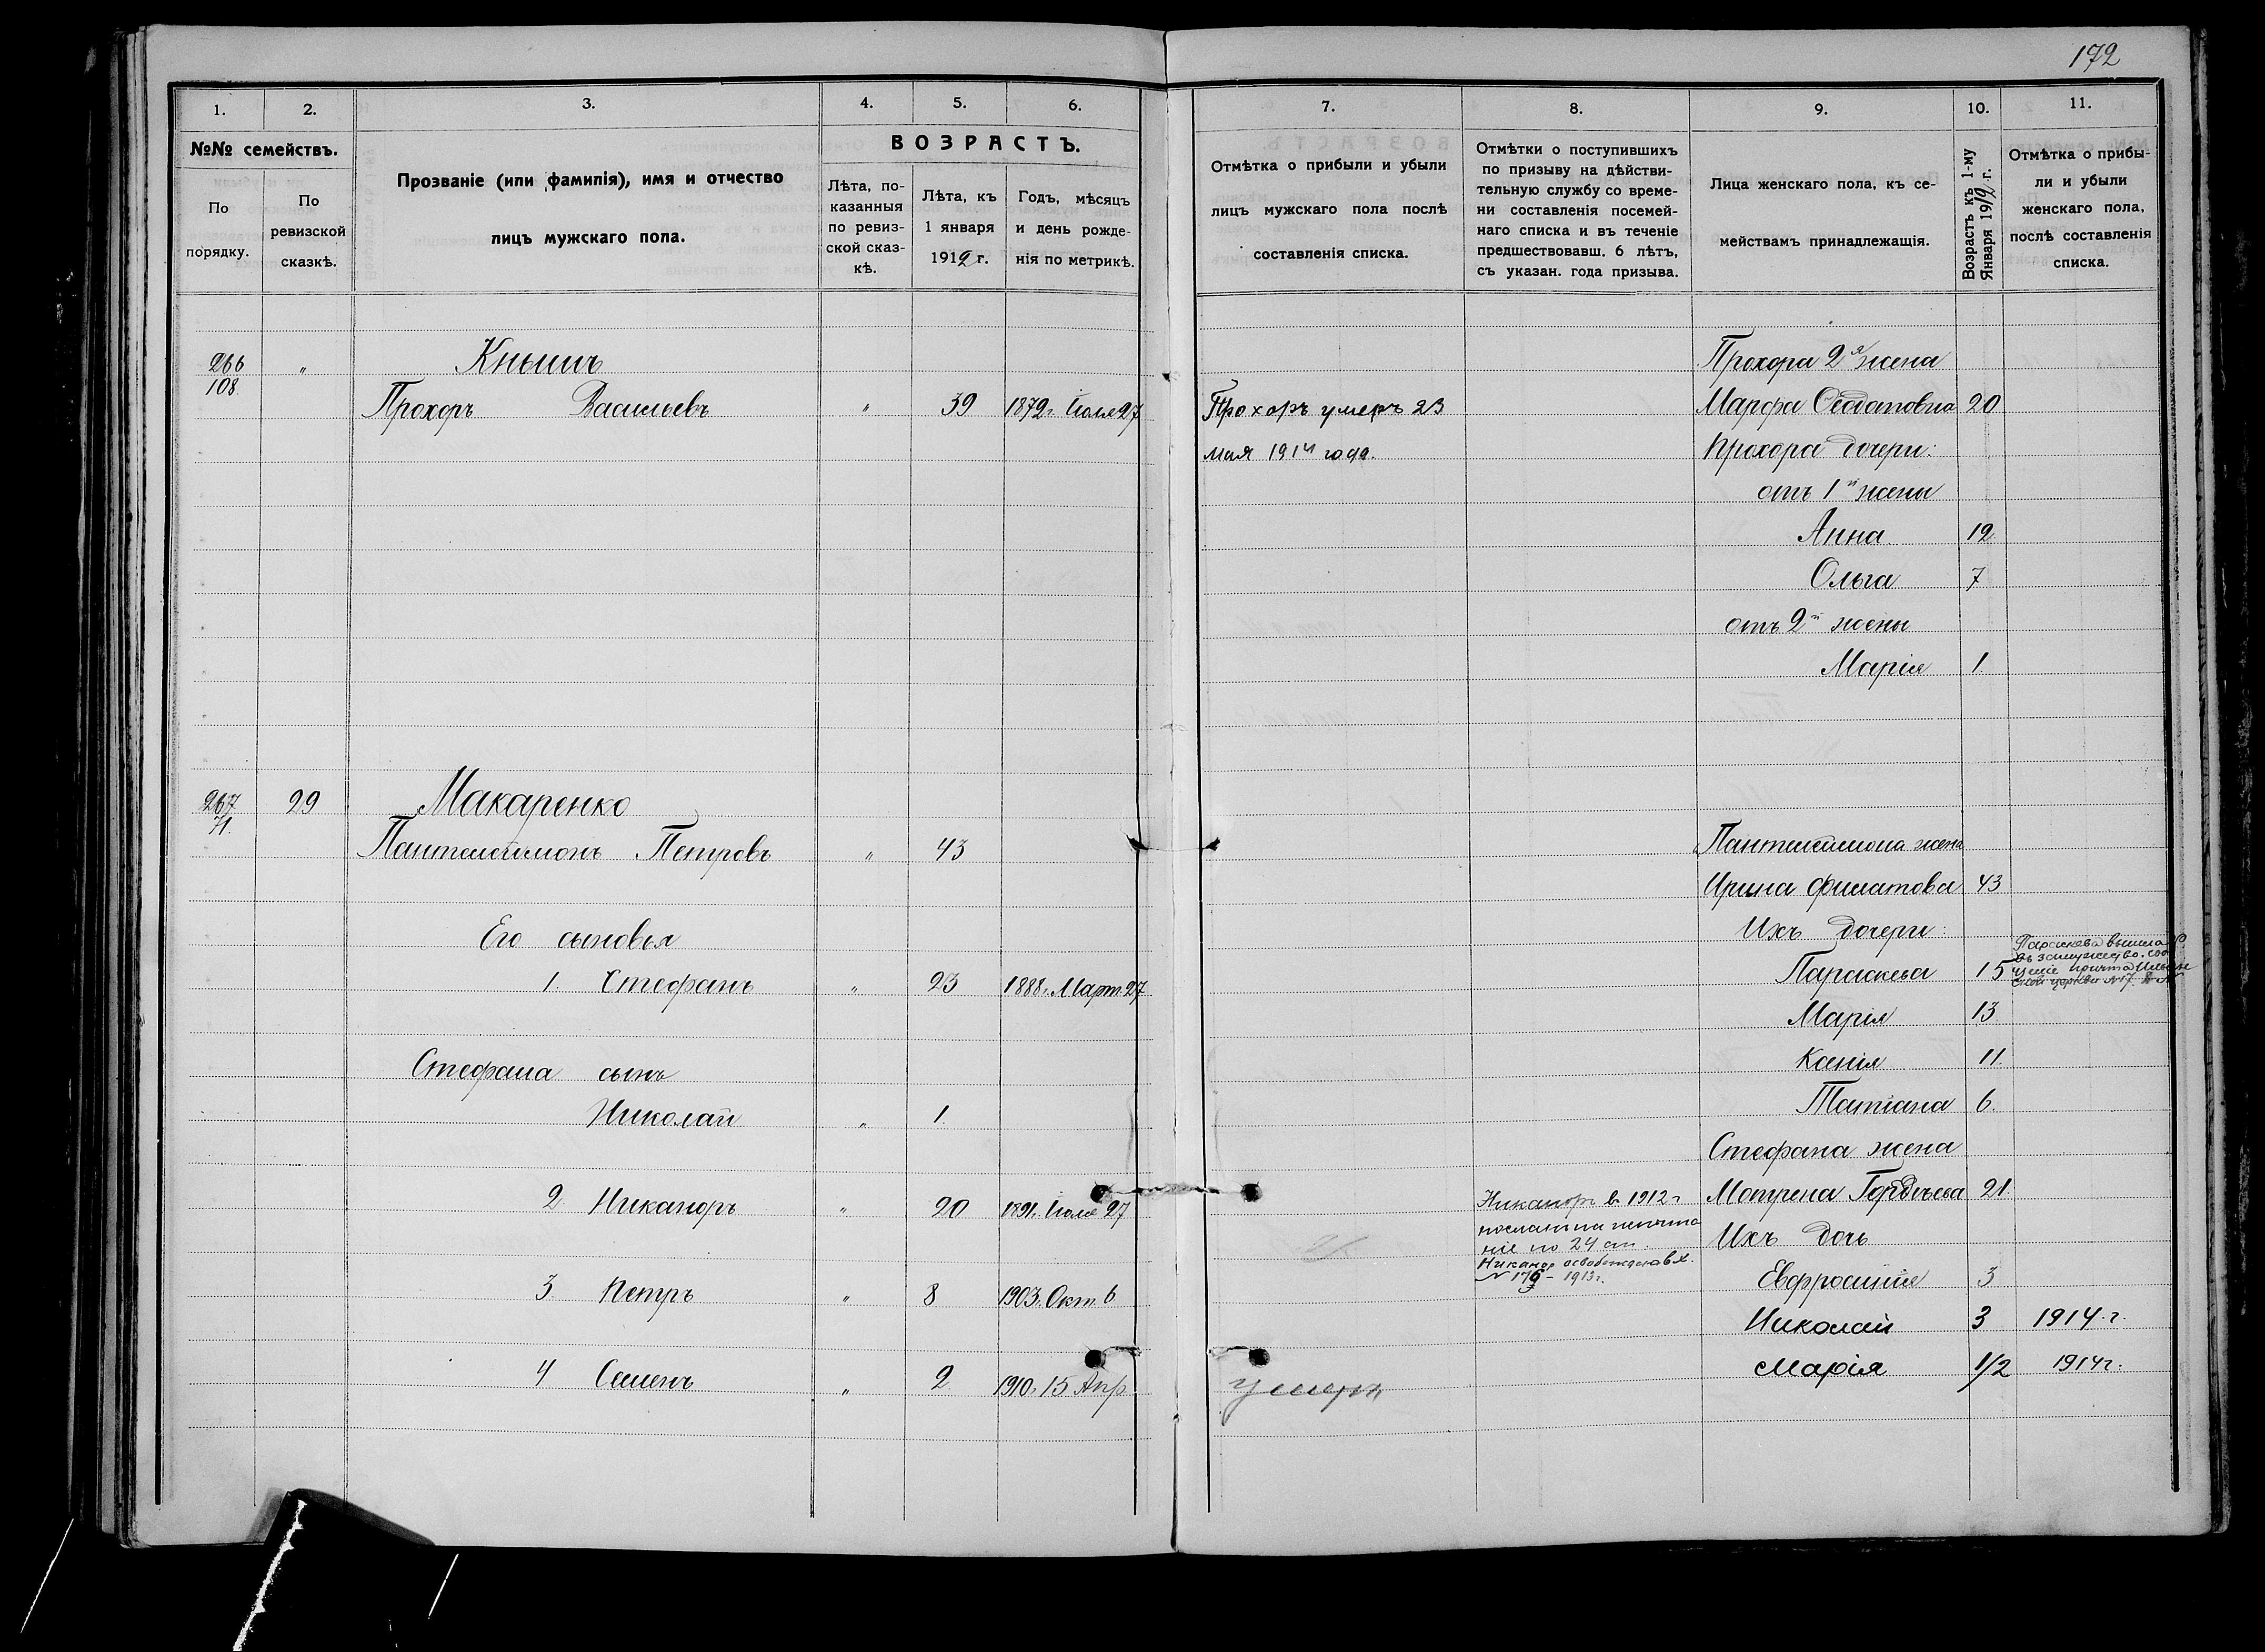 172
1. 2. 3. 4. 5. 6.
№№ семействъ.
По порядку.
По ревизской сказкѣ.
Прозваніе (или фамилія), имя и отчество
лицъ мужскаго пола.
ВОЗРАСТЪ.
Лѣта, по-
казанныя
по ревиз-
ской сказ-
кѣ.
Лѣта, къ
1 января
1912 г.
Годъ, мѣсяцъ
и день рожде-
нія по метрикѣ.
266 " Кнышъ
108
Прохоръ Васильевъ " 39 1872 г. Іюля 27
267 29 Макаренко
71.
Пантелеимонъ Петровъ " 43
Его сыновья
1 Стефанъ " 23 1888 г. Март. 27
Стефана сынъ
Николай " 1.
2 Никаноръ " 20 1891 г. Іюля 27
3 Петръ " 8 1903 г. Окт. 6
4 Семенъ " 2 1910 г. 15 Апр
7. 8. 9. 10. 11.
Отмѣтка о прибыли и убыли
лицъ мужскаго пола послѣ
составленія списка.
Отмѣтки о поступившихъ
по призыву на дѣйстви-
тельную службу со време-
ни составленія посемей-
наго списка и въ теченіе
предшествовавш. 6 лѣтъ,
съ указан. года призыва.
Лица женскаго пола, къ се-
мействамъ принадлежащія.
Возрастъ къ 1-му
Января 1912 г.
Отмѣтка о прибы-
ли и убыли
женскаго пола,
послѣ составленія
списка.
Прохора 2я жена
Прохоръ умеръ 23 Марфа 20
мая 1914 года. Прохора дочери:
отъ 1й жены
Анна 12
Ольга 7
отъ 2й жены
Марія 1
Пантелеимона жена
Ирина Филатова 43
Ихъ дочери:
Параскева 15
Параскева вышла
въ замужество.
церкви №7
Марія 13
Ксенія 11.
Татіана 6.
Стефана жена
Матрена Гордѣева 21
Никаноръ в 1912 г
посланъ на испыта
ніе по 24 ст.
Никанор освобожденъ вх.
№ 176 – 1913 г.
Ихъ дочь
Евфросинія 3
Николай 3 1914 г.
Марія 1/2 1914 г.
умеръ